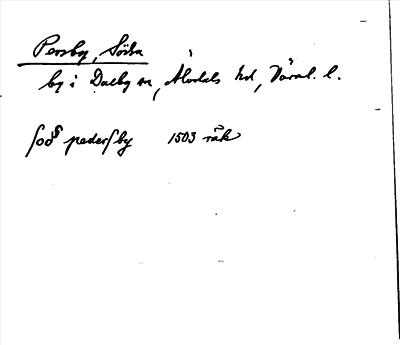 Persby, Södra
by i Dalby sn, Älvdals hd, Värml. l.
ſodˢ pederſby 1503 räk